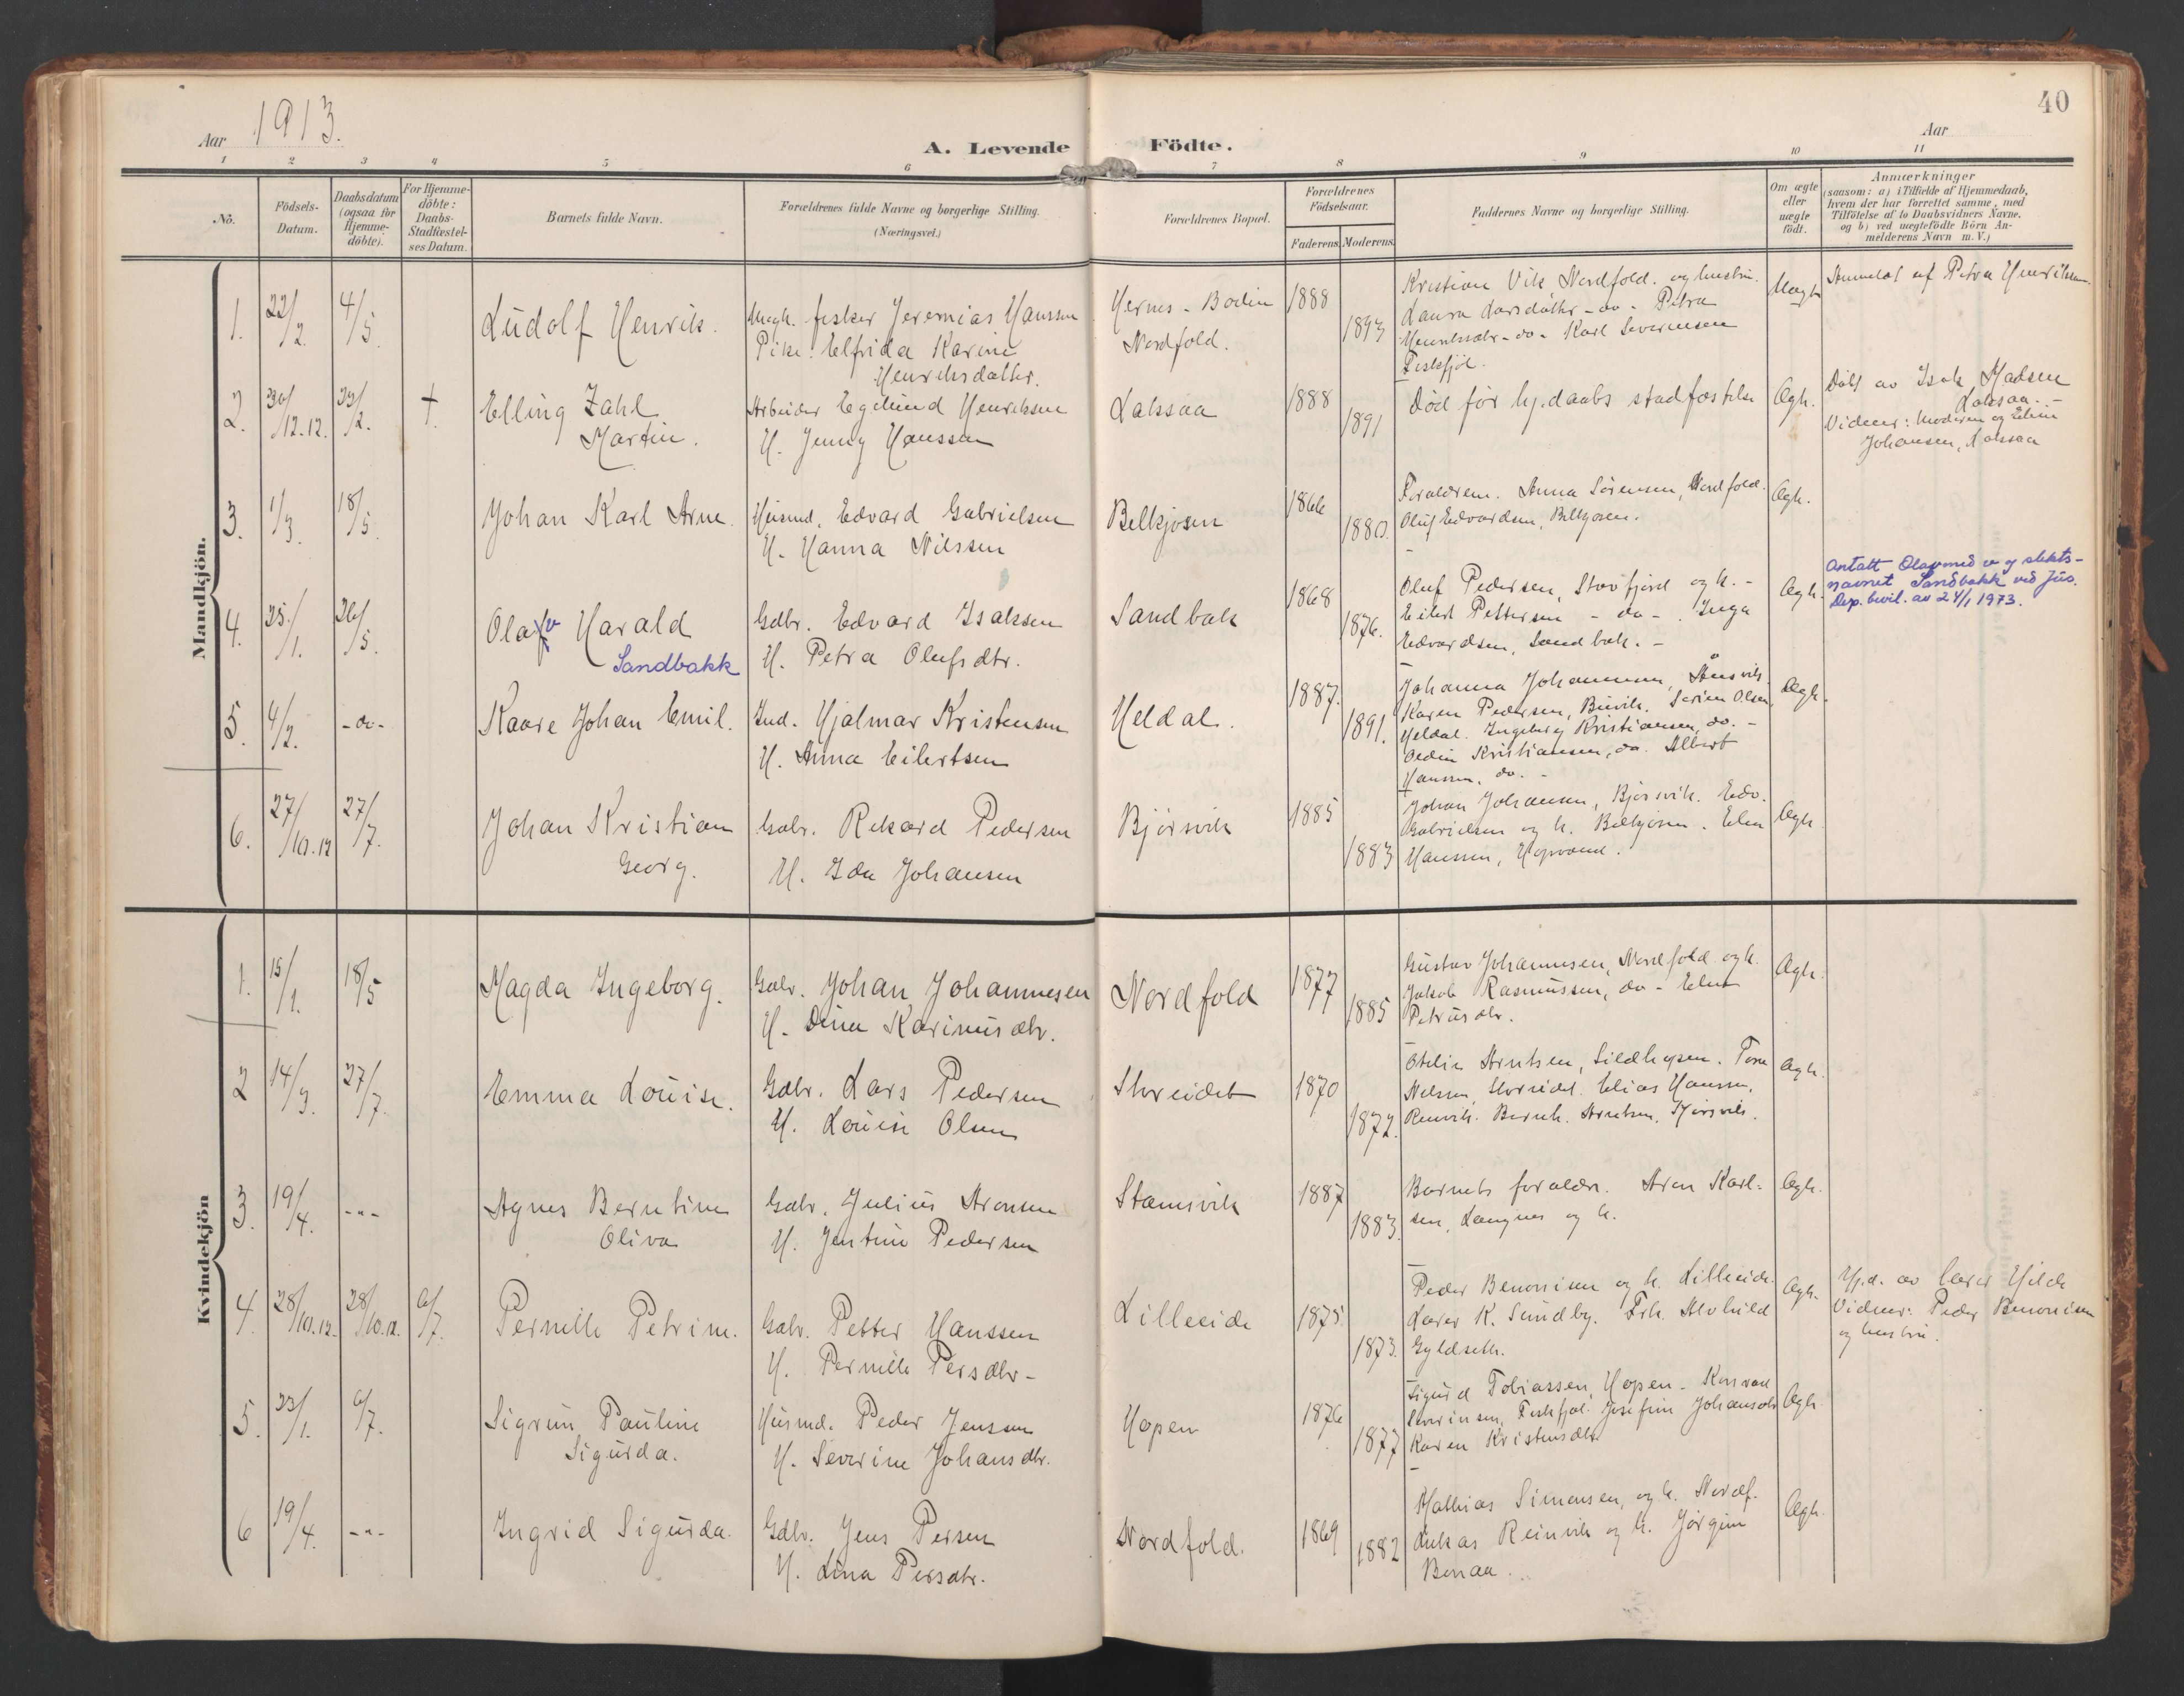 40
Aar 1913.
A. Levende Födte.
Aar
1 2 3 4 5 6 7 8 9 10 11
No.
Födsels-Datum.
Daabsdatum (ogsaa for Hjemme-döbte).
For Hjemme-döbte: Daabs-Stadfæstel-ses Datum.
Barnets fulde Navn.
Forældrenes fulde Navne og borgerlige Stilling.
(Næringsvei.)
Forældrenes Bopæl.
Forældrenes Födselsaar.
Faderens. Moderens.
Faddernes Navne og borgerlige Stilling.
Om ægte eller uægte födt.
Anmærkninger
(saasom: a) i Tilfælde af Hjemmedaab,
hvem der har forrettet samme, med
Tilföielse af to Daabsvidners Navne.
og b) ved uægtefödte Börn An-
melderens Navn m. V.)
Mandkjön.
1. 22/2. 4/5.
Ludolf Henrik.
Uægt. fisker Jeremias Hanssen
Pike. Elfrida Karine
Henriksdatter.
Hernes - Bodin
Nordfold.
1888 1893
Kristian Vik Nordfold. og hustru.
Laura Larsdatter - do - Petra
Henriksdtr - do - Karl Severinsen
Fiskfjel.
Uægte
Anmeldt af Petra Henriksen.
2. 30/12.12. 23/2. +
Elling Zahl
Martin.
Arbeider Egelund Henriksen
H. Jenny Hanssen
Laksaa
1888 1891
Død før hj.daabs stadfæstelse
Ægte.
Døbt av Isak Madsen
Laksaa. -
Vidner: Moderen og Elen
Johansen, Laksaa
3. 1/3. 18/5.
Johan Karl Arne.
Husmd. Edvard Gabrielsen
H. Hanna Nilssen
Belkjosen
1866 1880.
Forældrene. Anna Sørensen, Nordfold.
Oluf Edvardsen, Belkjosen.
Ægte.
4. 25/1. 26/5.
Olav Harald
Sandbakk
Gdbr. Edvard Isaksen
H. Petra Olufsdtr.
Sandbak
1868 1876.
Oluf Pedersen, Storfjord og h. -
Eilert Pettersen - do - . Inga
Edvardsen, Sandbak. -
Ægte.
Antatt Olav med v og slekts-
navnet Sandbakk ved Jus.
Dep. bevil. av 24/1 1973.
5. 4/2. - do -
Kaare Johan Emil.
Ind. Hjalmar Kristensen
H. Anna Eilertsen
Heldal.
1887. 1891.
Johanna Johannesen,
Karen Pedersen, Olsen
Heldal. Ingeborg Kristiansen, do. -
Kristiansen, do. Albert
Hanssen, do. -
Ægte.
6. 27/10.12 27/7.
Johan Kristian
Georg.
Gdbr. Rikard Pedersen
H. Ida Johansen
Bjørsvik
1885 1883
Johan Johansen, Bjørsvik. Edv.
Gabrielsen og h. Belkjosen. Elen
Hanssen, Hopvand.
Ægte
Kvindekjön
1. 15/1. 18/5
Magda Ingeborg.
Gdbr. Johan Johannesen
H. Dina Karinusdtr.
Nordfold
1877 1885
Gustav Johannesen, Nordfold og h.
Jakob Rasmussen, do - Elen
Petrusdtr.
Ægte.
2 14/3. 27/7.
Emma Louise.
Gdbr. Lars Pedersen
H. Louise Olsen
Storeidet
1870 1872.
Otelie Arntsen, Sildhopen. Tora
Nilssen, Storeidet. Elias Hanssen,
Reinvik. Bernh. Arntsen,
Ægte.
3. 19/4. - " -
Agnes Berntine
Oliva
Gdbr. Julius Aronsen
H. Jentine Pedersen
Stamsvik
1887 1883.
Barnets forældre. Aron Karl-
sen, Langnes og h.
Ægte.
4. 28/10.12. 28/10.12. 6/7.
Pernille Petrine.
Gdbr. Petter Hanssen
H. Pernille Persdtr -
Lilleeide
1875 1873.
Peder Benonisen og h. Lilleeide.
Lærer K. Sundby. Frk. Alvhild
Gyldseth.
Ægte.
Hj.d. av lærer Hilde
Vidner: Peder Benonisen
og hustru.
5. 23/1. 6/7.
Sigrun Pauline
Sigurda.
Husmd. Peder Jenssen
H. Severine Johansdtr.
Hopen
1876 1877
Sigurd Tobiassen, Hopen - Konrad
Severinsen, Fiskfjel. Josefine Johansdtr
Karen Kristensdtr
Ægte
6 19/4. - " -
Ingrid Sigurda.
Gdbr. Jens Persen
H. Lina Persdtr.
Nordfold.
1869 1882
Mathias Simonsen, og h. Nordf.
Lukas Reinvik og h. Jørgine
Bonaa.
Ægte.